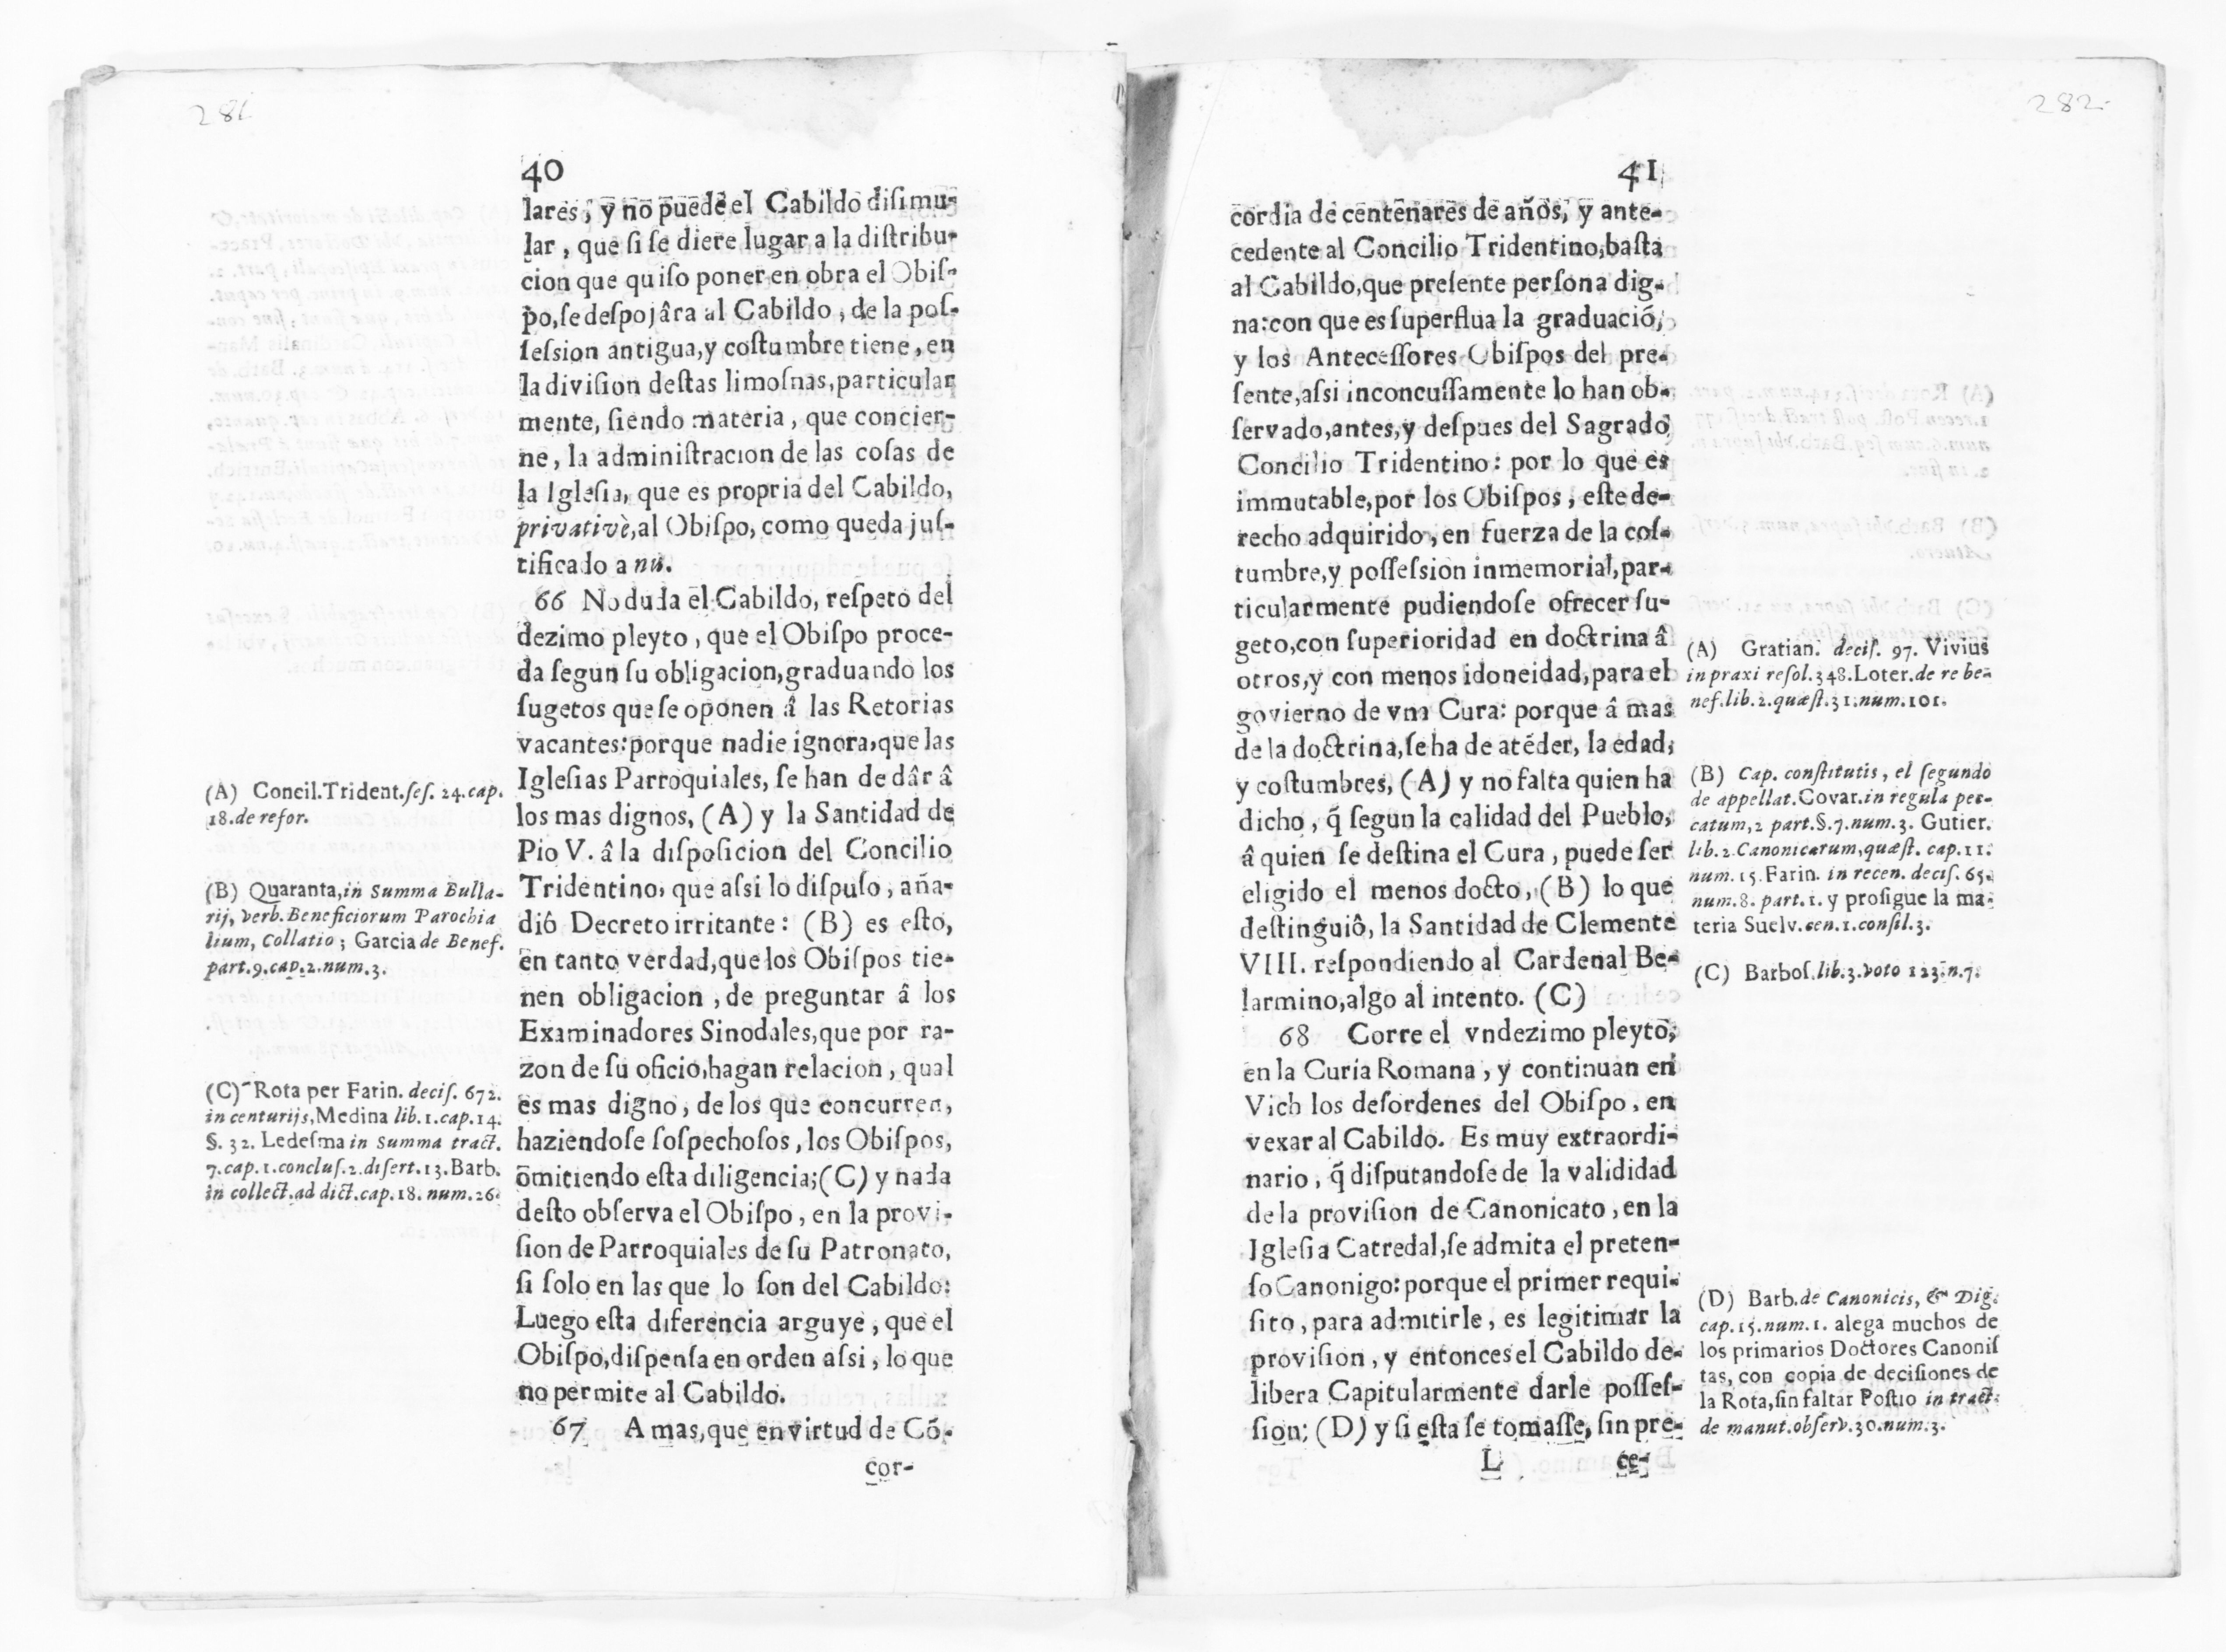 281
40
lares, y no puede el Cabildo disimu-
lar, que si se diere lugar a la distribu-
cion que quiso poner en obra el Obis-
po, se despojâra al Cabildo, de la pos-
session antigua, y costumbre tiene, en
la division destas limosnas, particular
mente, siendo materia, que concier-
ne, la administracion de las cosas de
la Iglesia, que es propria del Cabildo,
privativè, al Obispo, como queda jus-
tificado a nu.
66 No duda el Cabildo, respeto del
dezimo pleyto, que el Obispo proce-
da segun su obligacion, graduando los
sugetos que se oponen â las Retorias
vacantes: porque nadie ignora, que las
Iglesias Parroquiales, se han de dâr â
los mas dignos, (A) y la Santidad de
Pio V. â la disposicion del Concilio
Tridentino, que assi lo dispuso, aña-
diô Decreto irritante: (B) es esto,
en tanto verdad, que los Obispos tie-
nen obligacion, de preguntar â los
Examinadores Sinodales, que por ra-
zon de su oficio, hagan relacion, qual
es mas digno, de los que concurren,
haziendose sospechosos, los Obispos,
omitiendo esta diligencia; (C) y nada
desto observa el Obispo, en la provi-
sion de Parroquiales de su Patronato,
si solo en las que lo son del Cabildo:
Luego esta diferencia arguye, que el
Obispo, dispensa en orden assi, lo que
no permite al Cabildo.
67 A mas, que en virtud de Cõ-
cor-
(A) Concil. Trident. ses. 24. cap.
18. de refor.
(B) Quaranta, in Summa Bulla-
rij, verb. Beneficiorum Parochia
lium, Collatio; Garcia de Benef.
part. 9. cap. 2. num. 3.
(C) Rota per Farin. decis. 672.
in centurijs, Medina lib. 1. cap. 14.
§. 32. Ledesma in Summa tract.
7. cap. 1. conclus. 2. disert. 13. Barb.
in collect. ad dict. cap. 18. num. 26.
282
41
cordia de centenares de años, y ante-
cedente al Concilio Tridentino, basta
al Cabildo, que presente persona dig-
na: con que es superflua la graduació,
y los Antecessores Obispos del pre-
sente, assi inconcussamente lo han ob-
servado, antes, y despues del Sagrado
Concilio Tridentino: por lo que es
immutable, por los Obispos, este de-
recho adquirido, en fuerza de la cos-
tumbre, y possession inmemorial, par-
ticularmente pudiendose ofrecer su-
geto, con superioridad en doctrina â
otros, y con menos idoneidad, para el
govierno de vna Cura: porque â mas
de la doctrina, se ha de atẽder, la edad,
y costumbres, (A) y no falta quien ha
dicho, q̃ segun la calidad del Pueblo,
â quien se destina el Cura, puede ser
eligido el menos docto, (B) lo que
destinguiô, la Santidad de Clemente
VIII. respondiendo al Cardenal Be-
larmino, algo al intento. (C)
68 Corre el vndezimo pleyto,
en la Curia Romana, y continuan en
Vich los desordenes del Obispo, en
vexar al Cabildo. Es muy extraordi-
nario, q̃ disputandose de la valididad
de la provision de Canonicato, en la
Iglesia Catredal, se admita el preten-
so Canonigo: porque el primer requi-
sito, para admitirle, es legitimar la
provision, y entonces el Cabildo de-
libera Capitularmente darle posses-
sion; (D) y si esta se tomasse, sin pre-
L ce-
(A) Gratian. decis. 97. Vivius
in praxi resol. 348. Loter. de re be-
nef. lib. 2. quæst. 31. num. 101.
(B) Cap. constitutis, el segundo
de appellat. Covar. in regula pec-
catum, 2 part. §. 7. num. 3. Gutier.
lib. 2. Canonicarum, quæst. cap. 11.
num. 15. Farin. in recen. decis. 65.
num. 8. part. 1. y prosigue la ma-
teria Suelv. cen. 1. consil. 3.
(C) Barbos. lib. 3. voto 123. n. 7.
(D) Barb. de Canonicis, & Dig.
cap. 15. num. 1. alega muchos de
los primarios Doctores Canonis
tas, con copia de decisiones de
la Rota, sin faltar Postio in tract.
de manut. observ. 30. num. 3.